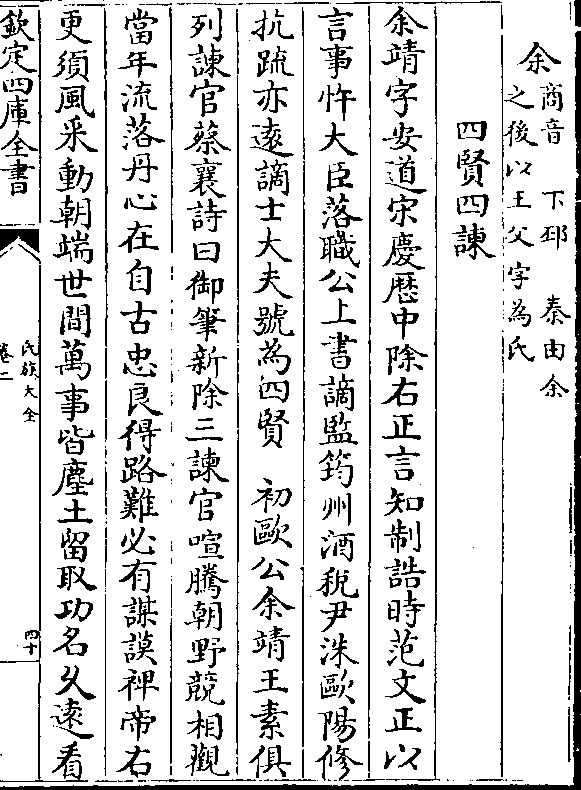 余商音　下邳　秦由余
之後以王父字為氏
四賢四諫
余靖字安道宋慶歷中除右正言知制誥時范文正以
言事忤大臣落職公上書謫監筠州酒稅尹洙歐陽修
抗䟽亦逺謫士大夫號為四賢　初歐公余靖王素俱
列諫官蔡襄詩曰御筆新除三諫官喧騰朝野競相觀
當年流落丹心在自古忠良得路難必有謀謨裨帝右
更須風采動朝端世間萬事皆塵土留取功名久逺看
欽定四庫全書
氏族大全
卷二
四十